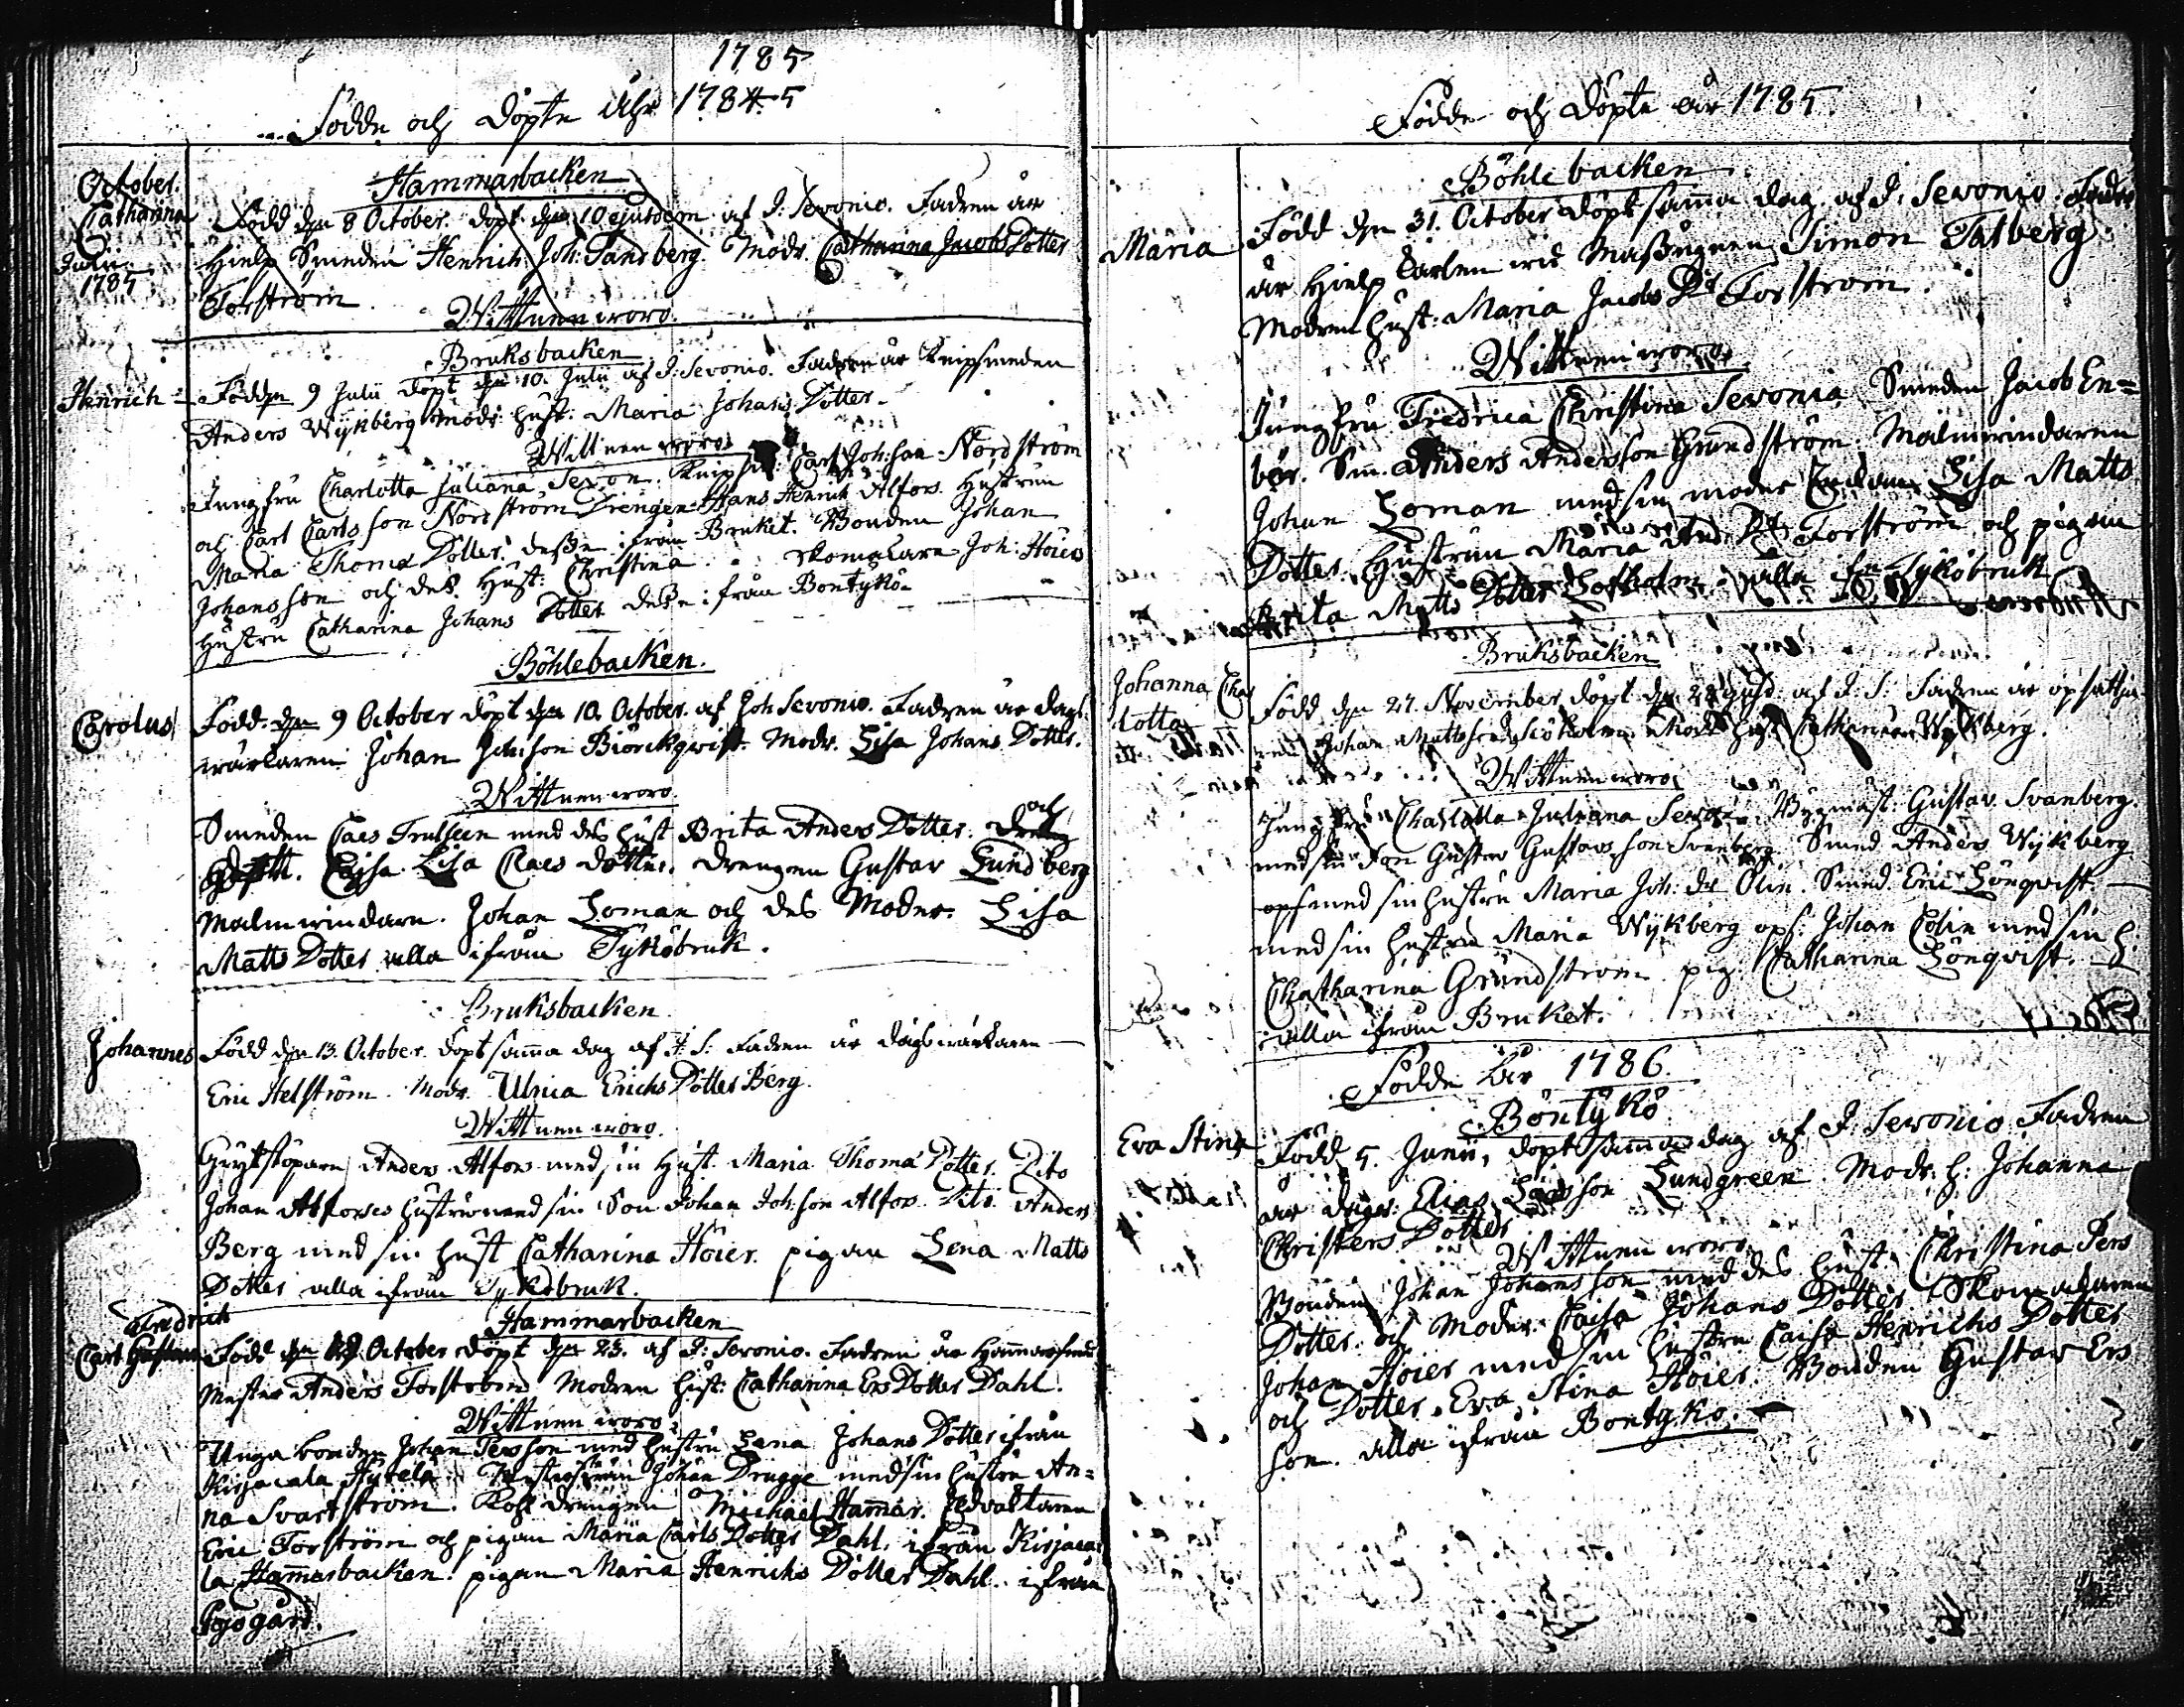 1785
Födde och Döpte Åhr 1784.5
October.
Hammarbacken
Catharina
Född den 8 October. döpt den 10 ejusdem af J: Sevonio. Fadren är
Hielp Smeden Henrich Joh: Sandberg. Modr. Catharina Jacobs Dotter
Julii
1785
Forström.
Wittnen woro.
Bruksbacken
Hinrich
Född den 9 Julii döpt den 10. Julii af J: Sevonio. Fadren är Knipsmeden
Anders Wijkberg Modr. Hust: Maria Johans Dotter.
Wittnen woro
Jungfru Charlotta Juliana Sevon. Knipsm: Carl Joh:son Nordström
och Carl Carlsson Nordström Drengen Hans Henrich Alfors. Hustrun
Maria Thomæ Dotter. desse ifrån Bruket. Bonden Johan
Johansson och des Hust: Christina. Skomakare Joh: Höier
Hustru Catharina Johans Dotter desse ifrån Bontykö
Böhlebacken.
Carolus
Född. den 9 October döpt den 10. October. af Joh Sevonio. Fadren är dags
wärkaren Johan Joh:son Biörckqvist. Modr. Lisa Johans Dotter.
Wittnen woro.
Smeden Claes Trulsen med des Hust Brita Anders Dotter. och
Cajsa Lisa Claes dotter. drengen Gustav Lundberg
Malmvindare. Johan Loman och des Moder. Lisa
Matts Dotter alla ifrån Tykö bruk.
Bruksbacken
Johannes
Född den 13. October. döpt samma dag af J: S: Fadren är dagswärkaren
Eric Helström. Modr. Ulrica Erichs Dotter Berg.
Wittnen woro.
Anders Alfors med sin Hust. Maria Thomæ Dotter. Dito
Johan Alforses Hustru med sin Son Johan Joh:son Alfors. Dito Anders
Berg med sin Hust Catharina Höier. pigan Lena Matts
Dotter alla ifrån Tykö bruk.
Fredrich
Hammarbacken
Carl Gustav
Född den October döpt den 23. af J: Sevonio. Fadren är Hammarsmeds
Mester Anders Forström Modren Hust: Catharina Ers Dotter Dahl.
Wittnen woro
Unga bonden Johan Persson med Hustru Lena Johans Dotter ifrån
Kirjacala Hyrelä. Johan Drugge med sin Hustru An=
na Svartström. Kohldrengen Michael Hammar.
Eric Forström och pigan Maria Carls Dotter Dahl. ifrån Kirjaca
la Hammarbacken. pigan Maria Henrichs Dotter Dahl. ifrån
Födde och Döpte åhr 1785.
Böhlebacken
Maria
Född den 31. October döpt samma dag. af J: Sevonio. Fadren
är Hielp Karlen wid Massugnen Simon Talberg.
Modren Hust: Maria Jacobs Dr Forström.
Wittnen woro
Jungfru Fredrica Christina Sevonia Smeden Jacob En=
bör. Sm. Anders Andersson Grundström. Malmvindaren
Johan Loman med sin moder Lisa Matts
Dotter. Hustrun Maria And: Dr Forström och pigan
Brita Matts Dotter Lofholm. alla ifrån Tykö bruk
Bruksbacken
Johanna Char
lotta
Född den 27. November döpt den 28 ejusd: af J: S: Fadren är opsättja
ren Johan Mattsson Siöholm Modr Hust Catharina Wijkberg.
Wittnen woro
Jungfru Charlotta Juliana Sevon. Bygmäst: Gustav Svanberg.
med sin Son Gustav Gustavsson Svanberg. Smed Anders Wijkberg
med sin Hustru Maria Joh: dr Olin. Smed Eric Lönqvist
med sin Hustru Maria Wijkberg ops: Johan Colin med sin H.
Chatharina Grundström. pig. Catharina Lönqvist.
alla ifrån Bruket.
Födde Åhr 1786.
Böntykö
Eva Stina
Född 5. Junii, döpt samma dag af J. Sevonio Fadren
är Elias Larsson Lundgreen. Modr. H: Johanna
Christers Dotter
Wittnen woro
Bonden Johan Johansson med des Hust. Christina Pers
Dotter. och Moder. Caisa Johans Dotter. Skomakaren
Johan Höier med sin Hustru Caisa Henrichs Dotter
och Dotter Eva Stina Höier. Bonden Gustav Ers
son. alla ifrån Bontykö.